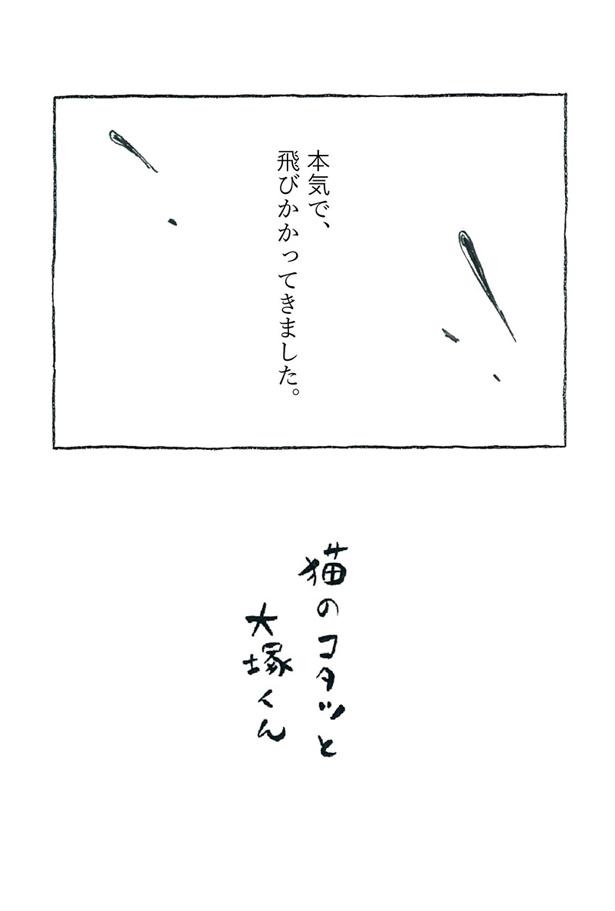 本気で、
飛びかかってきました。
猫のコタツと
大塚くん